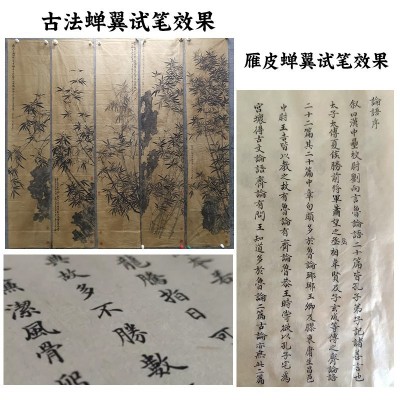 古法蝉翼试笔效果
雁皮蝉翼试笔效果
論語序
叙曰漢中壘校尉劉向言魯論語二十篇皆孔子弟子記諸善言也
太子太傅夏侯勝前將軍蕭望之丞相韋賢及子玄成等傳之齊論語
二十二篇其二十篇中章句頗多於魯論琅琊王卿及膠東庸生昌邑
中尉王吉皆以教之故有魯論有齊論魯恭王時嘗欲以孔子宅為
宮壞得古文論語齊論有問王知道多於魯論二篇古論亦無此二篇
可
龍騰指日
故多不勝數
潔風骨